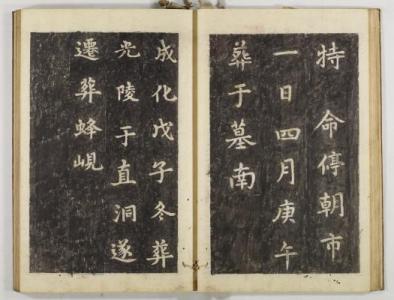 特命停朝市
一日四月庚午
葬于墓南
成化戊子冬葬
光陵于直洞遂
遷葬蜂峴